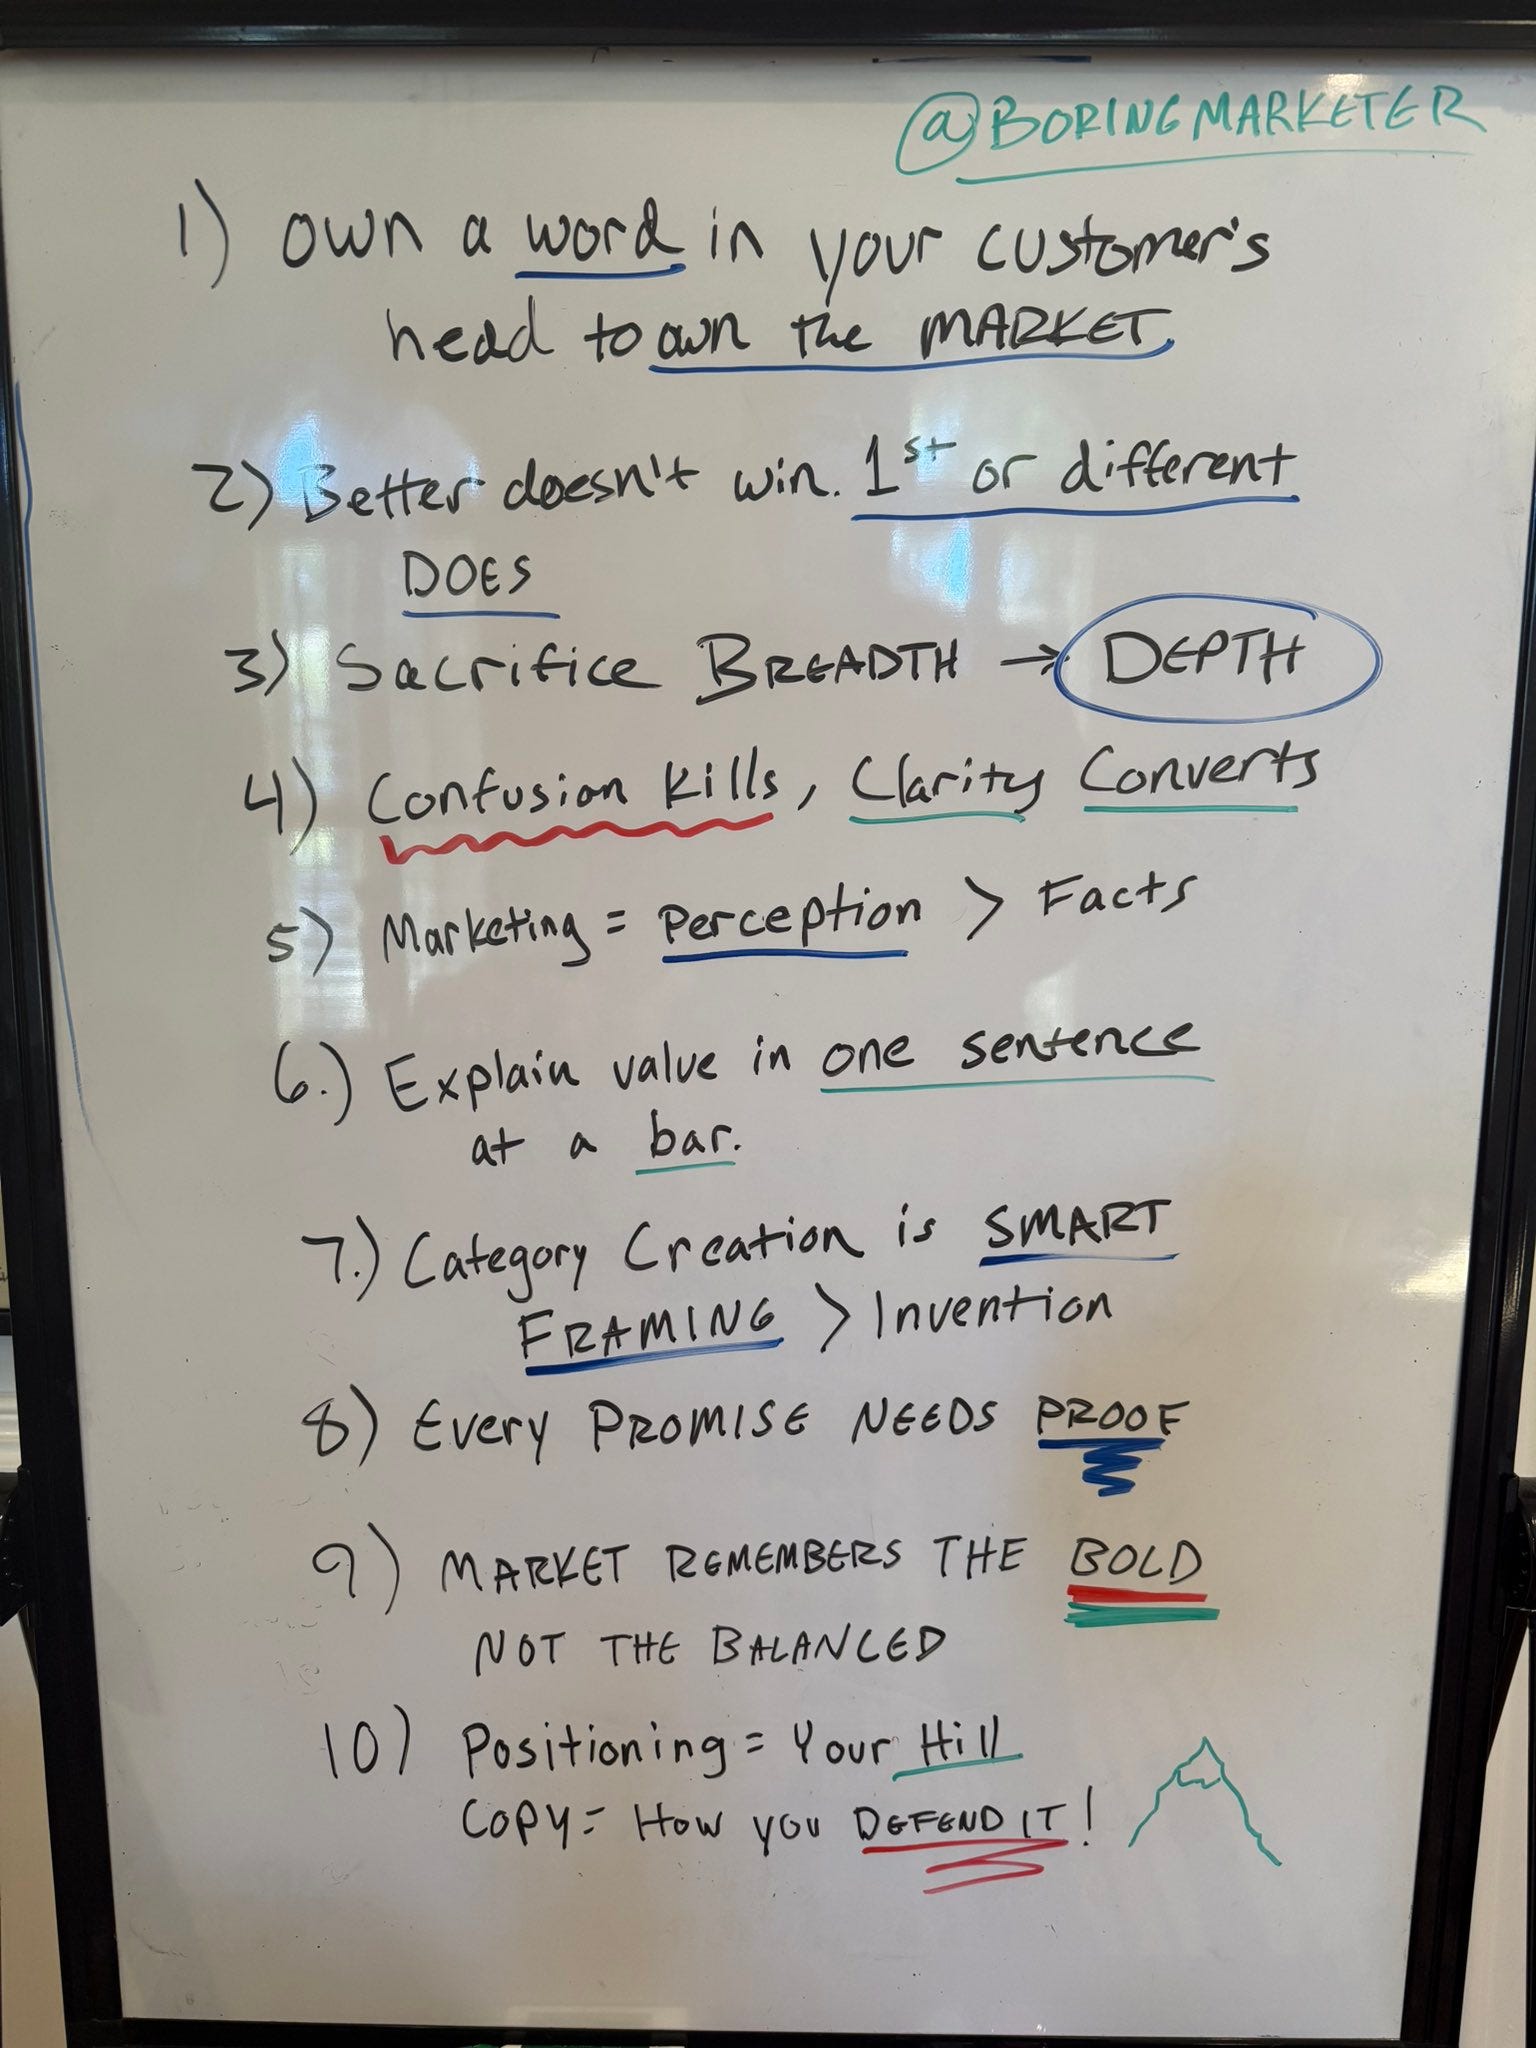 @BORINGMARKETER
1) own a word in your customer's
head to own the MARKET.
2) Better doesn't win. 1st or different
DOES
3) Sacrifice BREADTH → DEPTH
4) Confusion Kills, Clarity Converts
5) Marketing = Perception > Facts
6.) Explain value in one sentence
at a bar.
7.) Category Creation is SMART
FRAMING > Invention
8) Every PROMISE NEEDS PROOF
9) MARKET REMEMBERS THE BOLD
NOT THE BALANCED
10) Positioning = Your Hill
COPY = How you DEFEND IT!